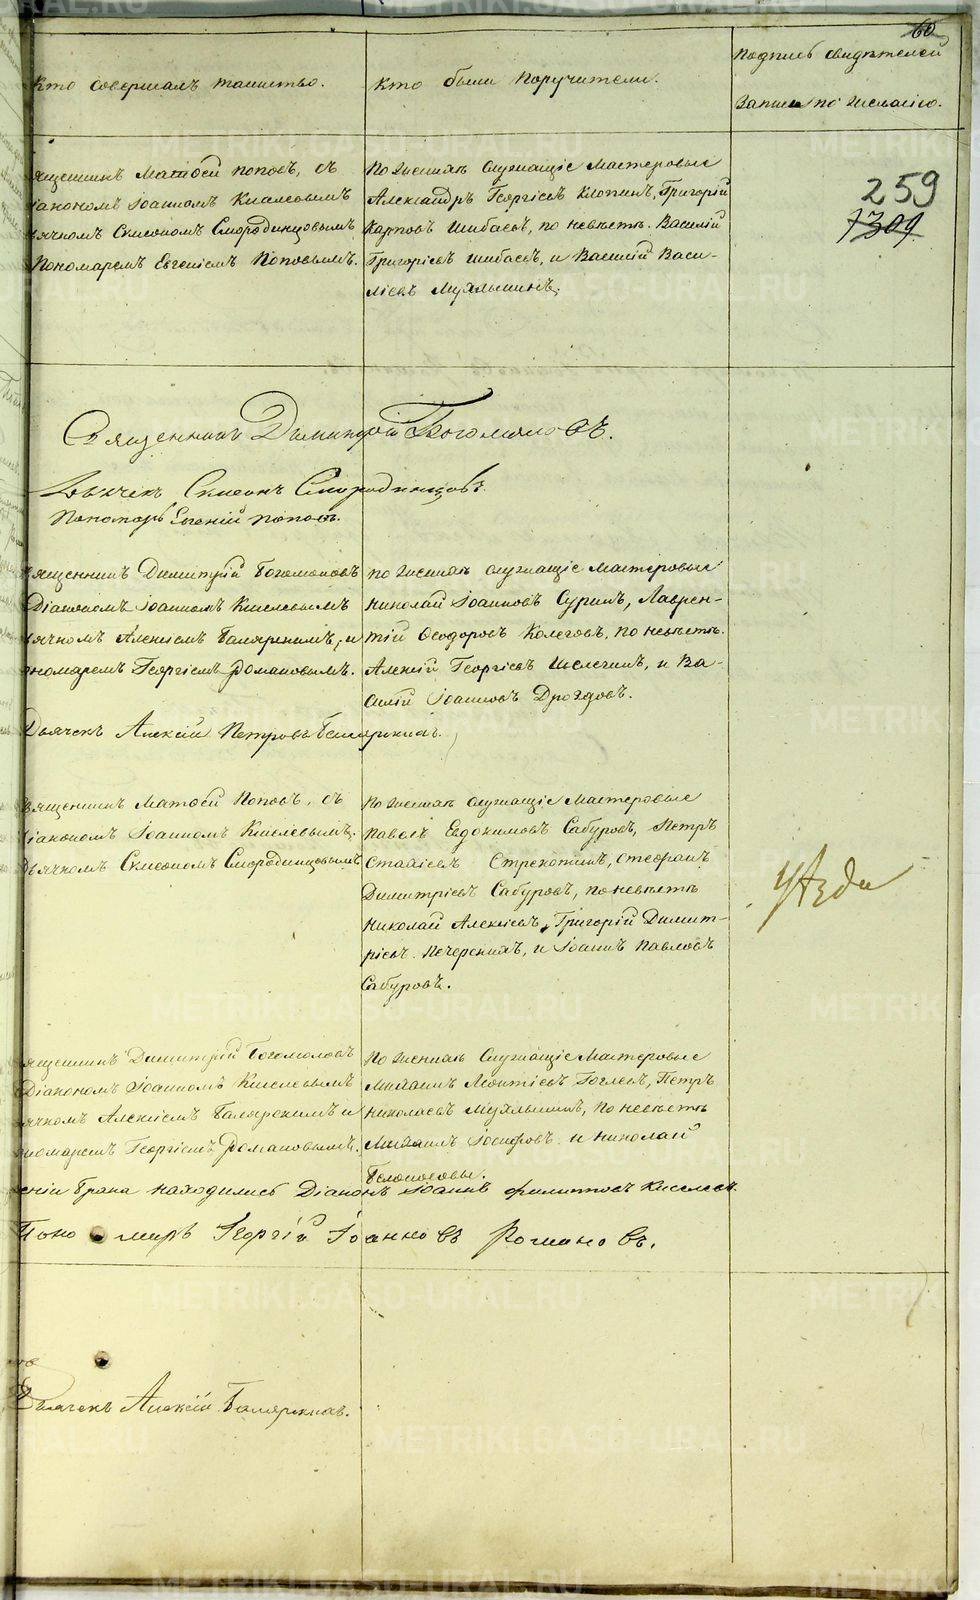 60
Кто совершалъ таинство.
Кто были поручители.
Подпись свидѣтелей
записи по желанію.
259
1301
ященникъ Матѳей Поповъ, съ
іакономъ Іоанномъ Киселевымъ
ячкомъ Симеономъ Смородинцовымъ
Пономаремъ Евгеніемъ Поповымъ.
По женихѣ служащіе мастеровые
Александръ Георгіевъ Клопинъ, Григорій
Карповъ Шибаевъ, по невѣстѣ. Василій
Григоріевъ Шибаевъ, и Василій Васи-
ліевъ Мухлынинъ.
Священникъ Димитрій Богомоловъ.
Дьячекъ Симеонъ Смородинцовъ.
Пономарь Евгеній Поповъ.
вященникъ Димитрій Богомоловъ
Діакономъ Іоанномъ Киселевымъ
ьячкомъ Алексіемъ Бамяркинымъ, и
ономаремъ Георгіемъ Романовымъ.
по женихѣ служащіе мастеровые
Николай Іоанновъ Суринъ, Лаврен-
тій Ѳеодоровъ Колеговъ, по невѣстѣ.
Алексій Георгіевъ Шелегинъ, и Ва-
силій Іоанновъ Дроздовъ.
Дьячекъ Алексій Петровъ
вященникъ Матѳей Поповъ, съ
іакономъ Іоанномъ Киселевымъ,
Дьячкомъ Симеономъ Смородинцовымъ
По женихѣ служащіе мастеровые
Павелъ Евдокимовъ Сабуровъ, Петръ
Стахіевъ Стрекотинъ, Стефанъ
Димитріевъ Сабуровъ, по невѣстѣ
Николай Алексіевъ, Григорій Димит-
ріевъ Печерскихъ, и Іоаннъ Павловъ
Сабуровъ.
ященникъ Димитрій Богомоловъ
Діакономъ Іоанномъ Киселевымъ
ячкомъ Алексіемъ и
номаремъ Георгіемъ Романовымъ.
По женихѣ служащіе мастеровые
Михаилъ Леонтіевъ Гоглевъ, Петръ
Николаевъ Мухлынинъ, по невѣстѣ
Михаилъ Іосифовъ и Николай
Белоносовы.
еніи брака находились Діаконъ Іоаннъ Филиповъ Киселевъ.
Пономарь Георгій Іоанновъ Романовъ.
Дьячекъ Алексій
METRIKI.GASO-URAL.RU